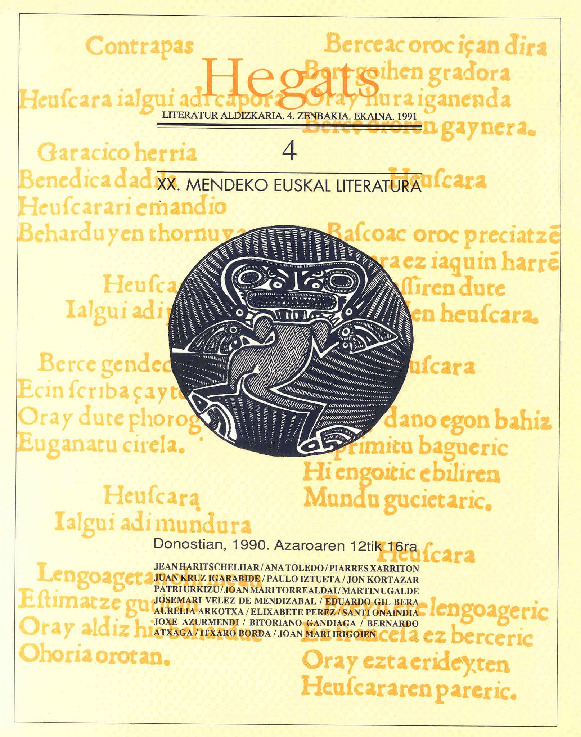 Contrapas
Heuſcara ialgui adi cãpora
Garacico herria
Benedica dadila
Heuſcarari emandio
Behardu yen thornuya
Heuſca
Ialgui adi p
Berce gendec
Ecin ſcriba çayte
Oray dute phorog
Euganatu cirela.
Heuſcara
Ialgui adi mundura
Lengoageta
Eſtimatze gu
Oray aldiz hi
Ohoria orotan.
Berceac oroc içan dira
Bere goihen gradora
Oray hura iganenda
Berce ororen gaynera.
Heuſcara
Baſcoac oroc preciatzẽ
ra ez iaquin harrẽ
ſſiren dute
en heuſcara.
uſcara
dano egon bahiz
primitu bagueric
Hi engoitic ebiliren
Mundu gucietaric.
Heuſcara
lengoageric
ez berceric
Oray ezta erideyten
Heuſcararen pareric.
Hegats
LITERATUR ALDIZKARIA. 4. ZENBAKIA. EKAINA. 1991
4
XX. MENDEKO EUSKAL LITERATURA
Donostian, 1990. Azaroaren 12tik 16ra
JEAN HARITSCHELHAR / ANA TOLEDO / PIARRES XARRITON
JUAN KRUZ IGARABIDE / PAULO IZTUETA / JON KORTAZAR
PATRI URKIZU / JOAN MARI TORREALDAI / MARTIN UGALDE
JOSEMARI VELEZ DE MENDIZABAL / EDUARDO GIL BERA
AURELIA ARKOTXA / ELIXABETE PEREZ / SANTI ONAINDIA
JOXE AZURMENDI / BITORIANO GANDIAGA / BERNARDO
ATXAGA / ITXARO BORDA / JOAN MARI IRIGOIEN